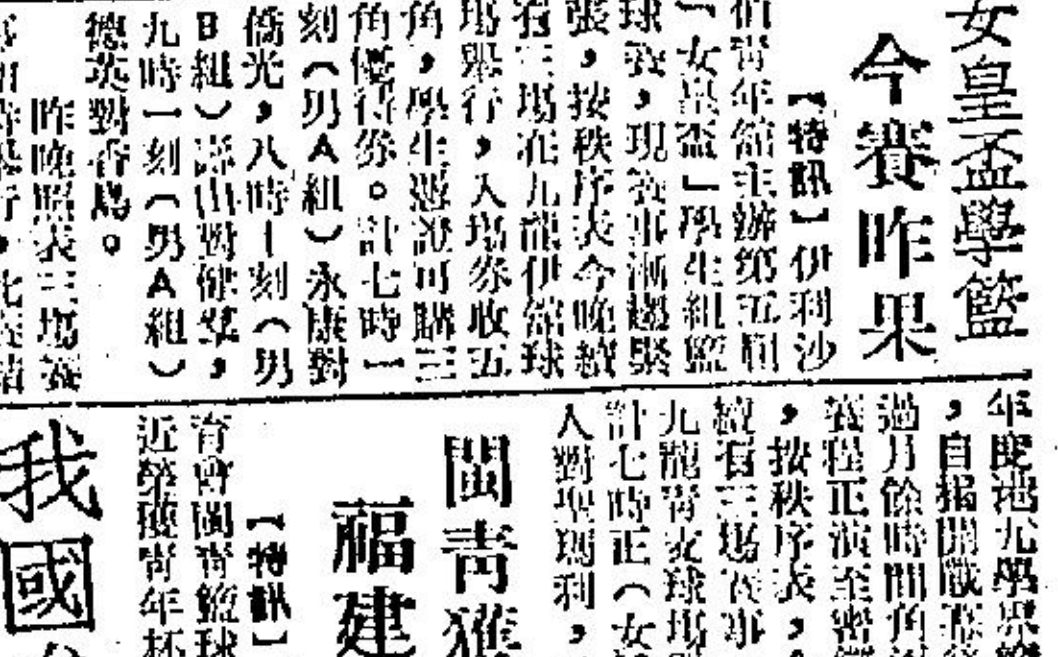 女皇盃學籃
今賽昨果
【特訊】伊利沙
伯青年館主辦第五屆
「女皇盃」學生組籃
球賽，現賽事漸趨緊
張，按秩序表今晚續
有三場在九龍伊館球
場舉行，入場券收五
角，學生憑證可購三
角優待券。計七時一
刻（男A組）永康對
僑光，八時一刻（男
B組）嵩山對健羣，
九時一刻（男A組）
德英對香島。
昨晚照表三場賽
年度港九學界
，自揭開戰幕
過月餘時間角
賽程正演至密
，按秩序表，
續有三場賽事
九龍青麥球場
計七時正（女
人對聖瑪利，
閩青獲
福建
【特訊】
育會閩青籃球
近榮獲青年杯
我國